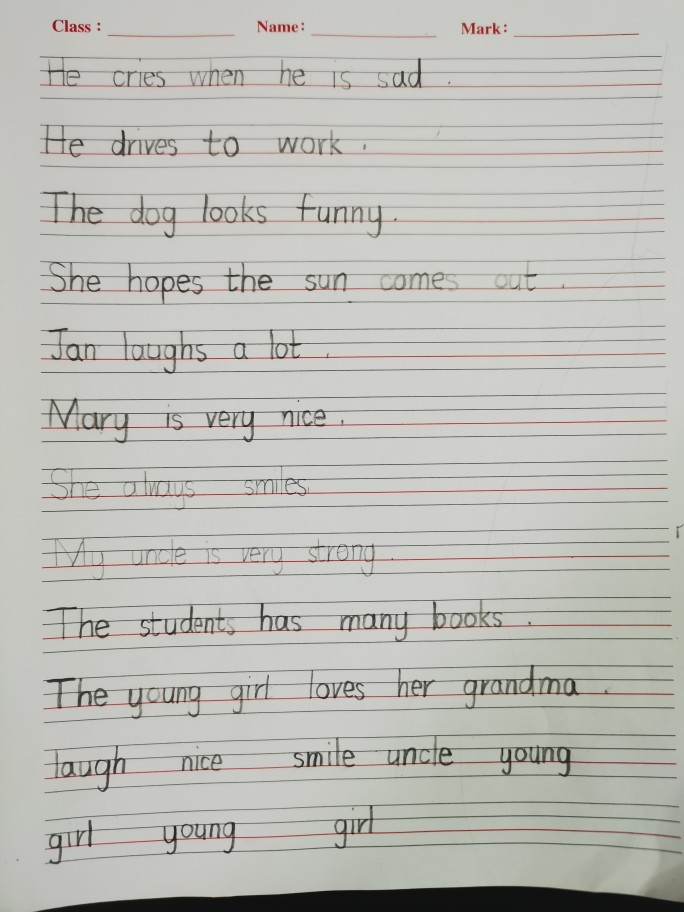 Class: Name: Mark:
He cries when he is sad.
He drives to work.
The dog looks funny.
She hopes the sun comes out.
Jan laughs a lot.
Mary is very nice.
She always smiles.
My uncle is very strong.
The students has many books.
The young girl loves her grandma.
laugh nice smile uncle young
girl young girl